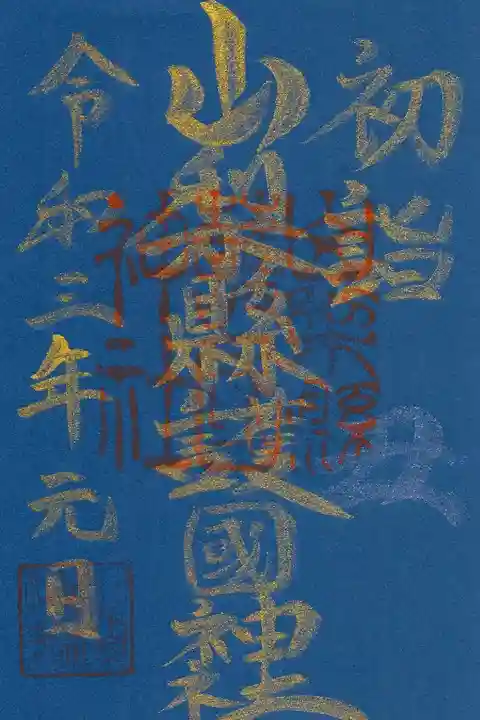 初詣
丑
山梨縣護國神社
令和三年元日